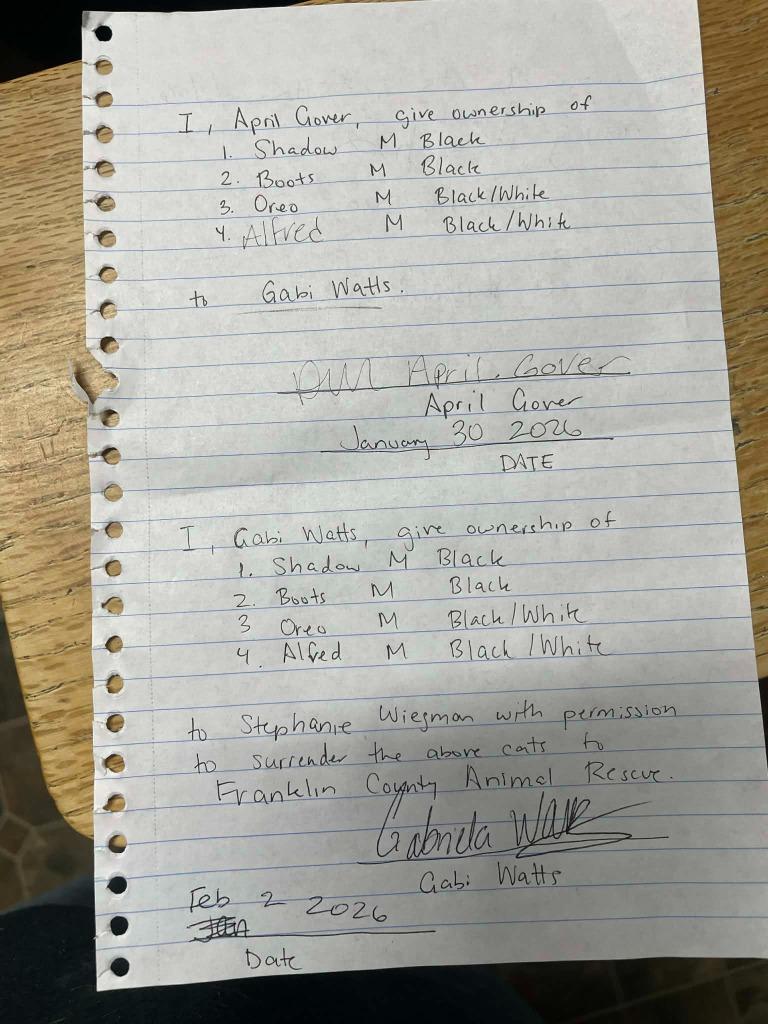 I, April Gover, give ownership of
1. Shadow M Black
2. Boots M Black
3. Oreo M Black/White
4. Alfred M Black/White
to Gabi Watts.
April Gover
April Gover
January 30 2026
DATE
I, Gabi Watts, give ownership of
1. Shadow M Black
2. Boots M Black
3 Oreo M Black/White
4. Alfred M Black/White
to Stephanie Wiegman with permission
to surrender the above cats to
Franklin County Animal Rescue.
Gabriela
Gabi Watts
Feb 2 2026
Date